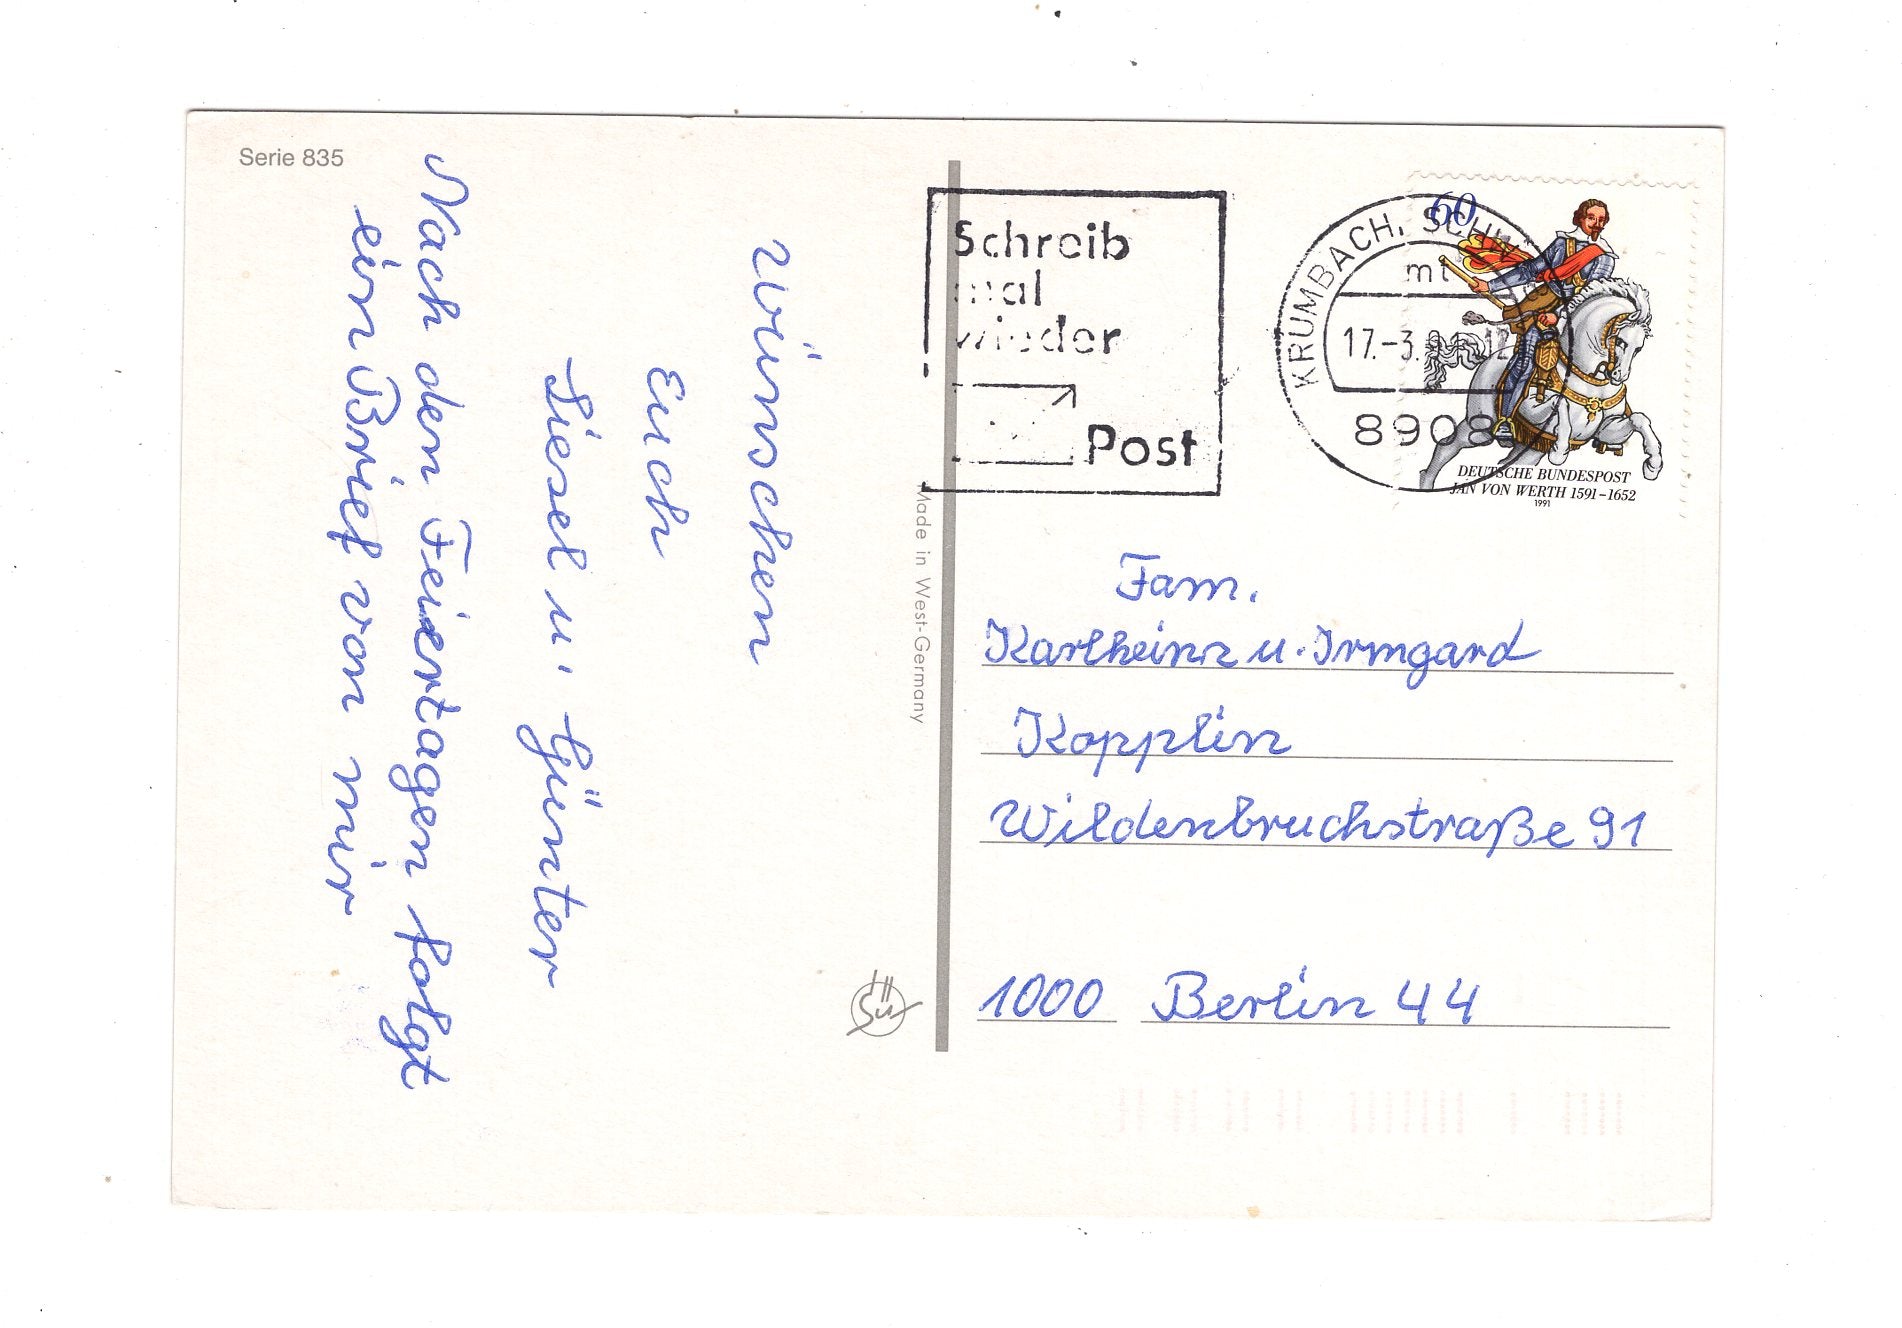 Serie 835
wünschen
Euch
Liesel u. Günter
Nach den Feiertagen folgt
ein Brief von mir
Made in West-Germany
Sü
Schreib
mal
wieder
Post
KRUMBACH, SCHW
mt
17.-3.
8908
60
DEUTSCHE BUNDESPOST
JAN VON WERTH 1591-1652
1991
Fam.
Karlheinz u. Irmgard
Kopplin
Wildenbruchstraße 91
1000 Berlin 44